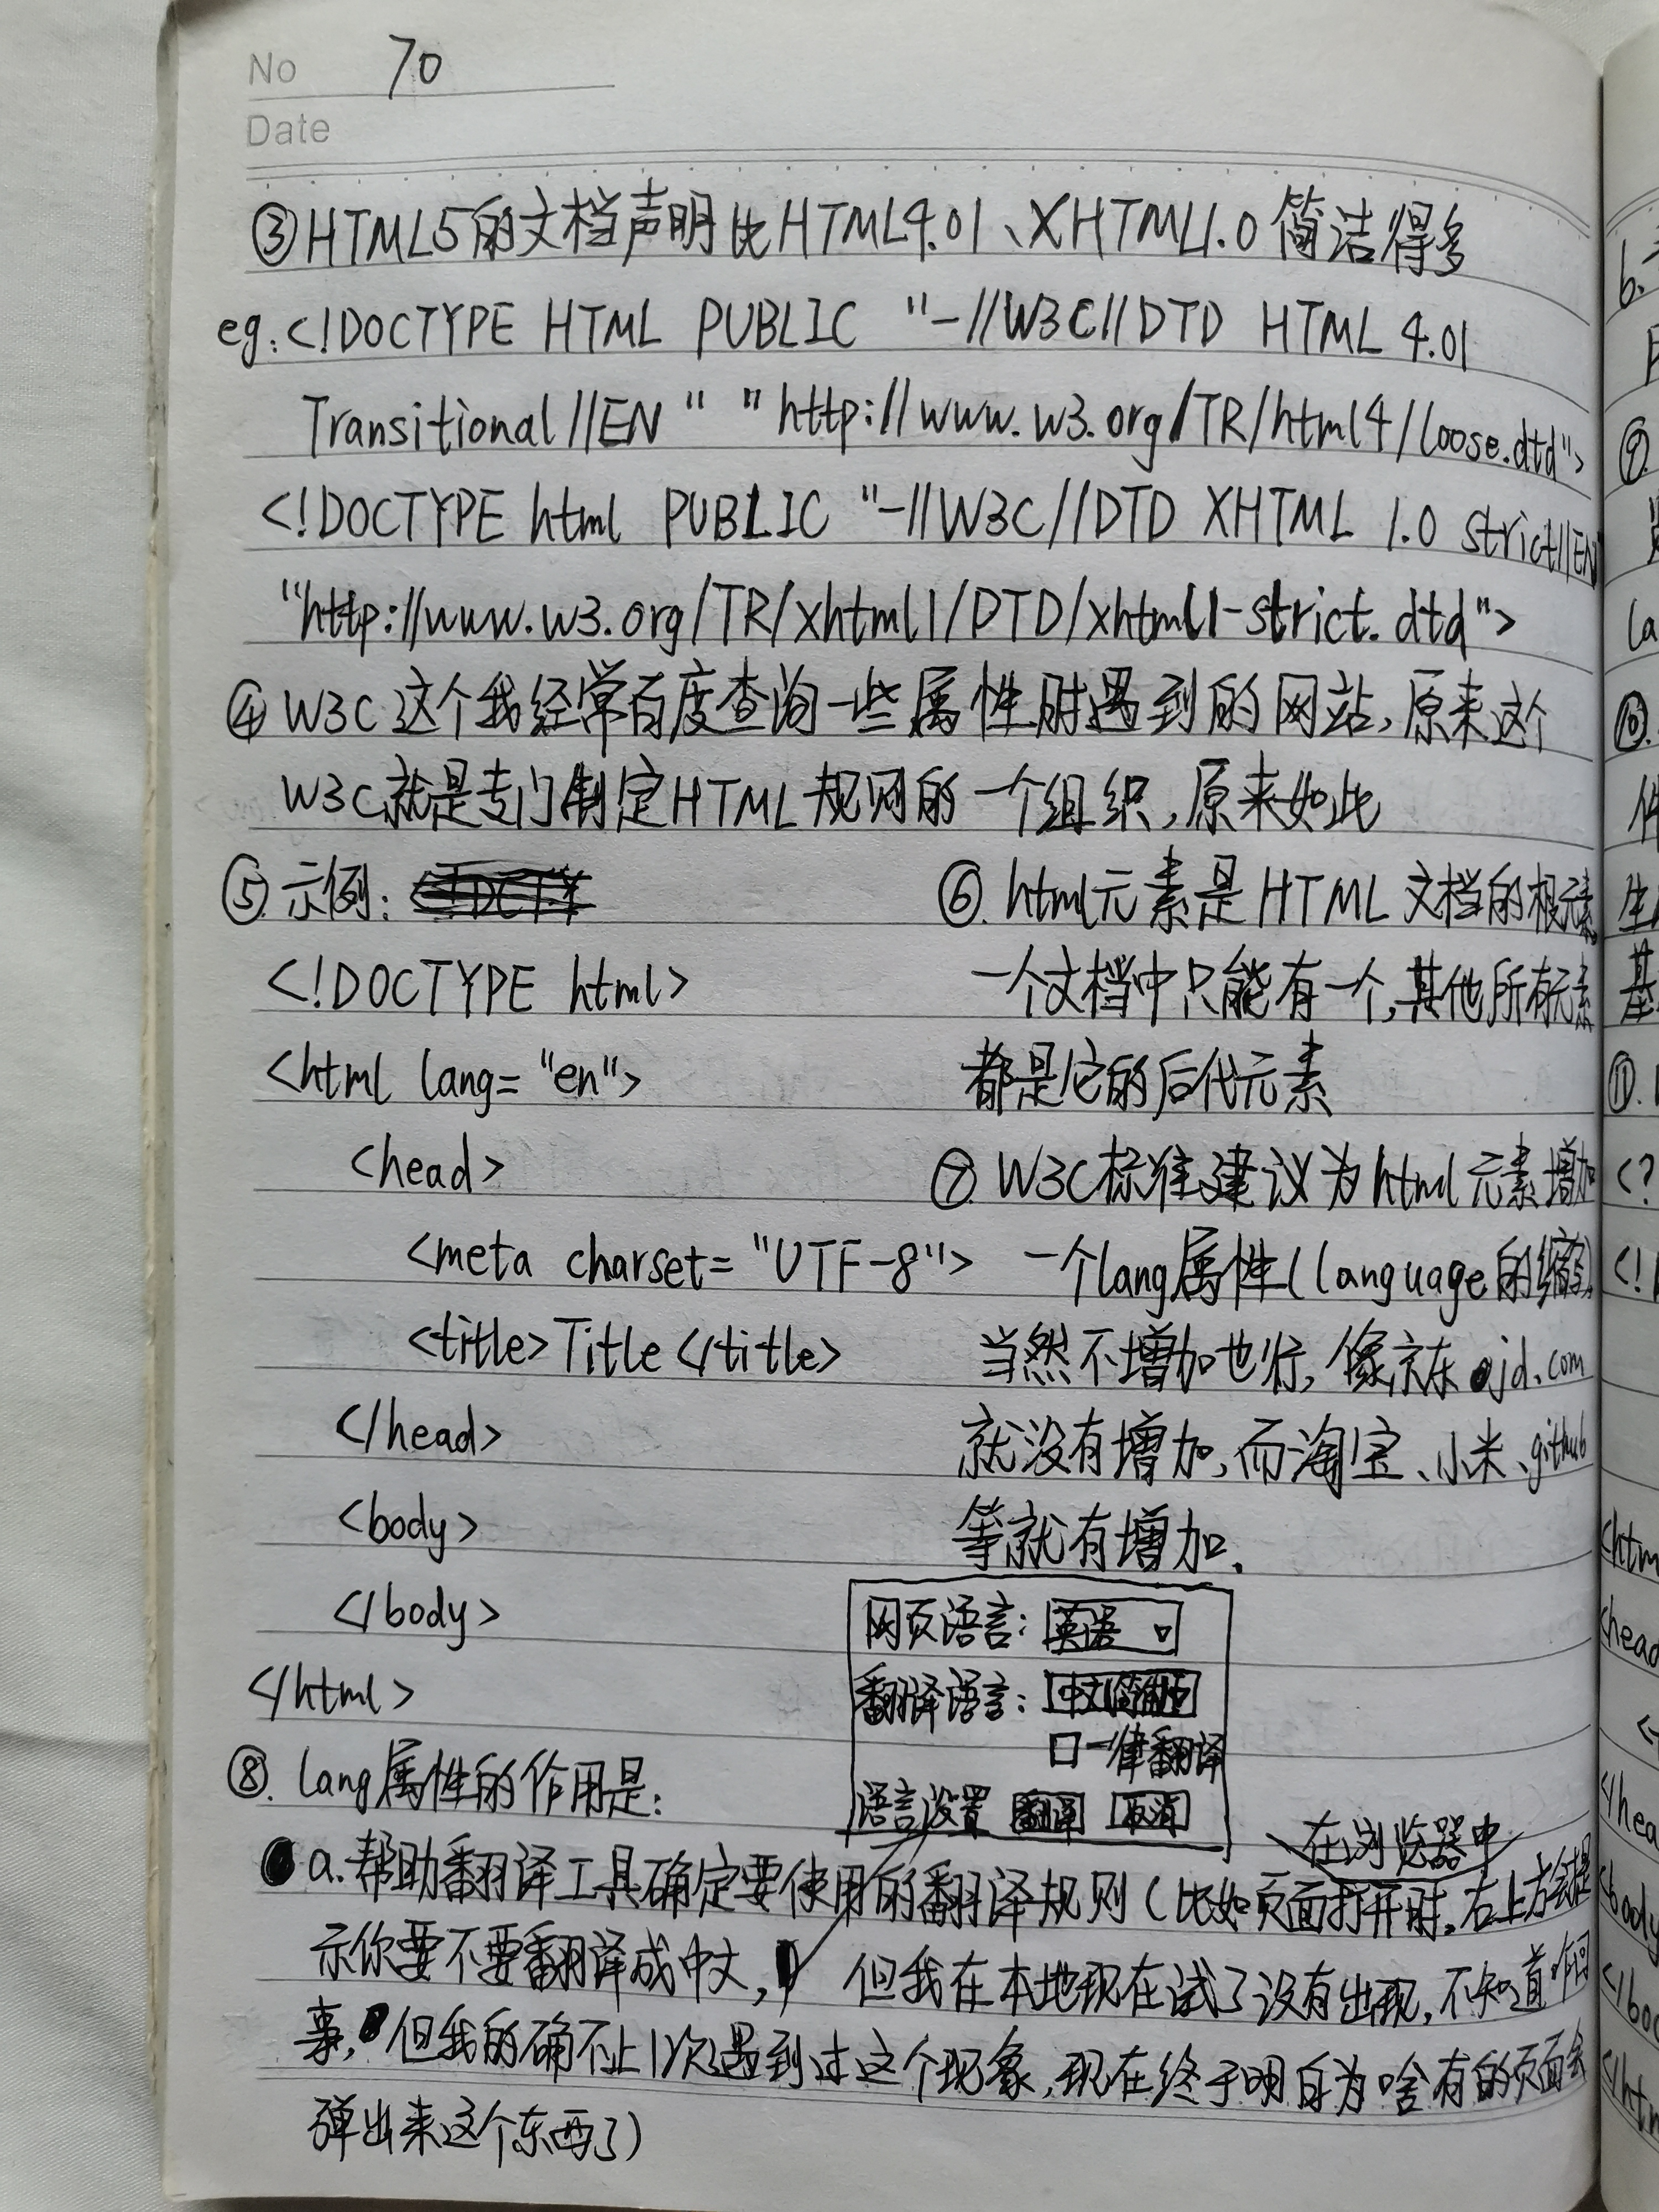 No 70
Date
③HTML5的文档声明比HTML4.01、XHTML1.0简洁得多
eg:<!DOCTYPE HTML PUBLIC "-//W3C//DTD HTML 4.01
Transitional//EN" "http://www.w3.org/TR/html4/loose.dtd">
<!DOCTYPE html PUBLIC "-//W3C//DTD XHTML 1.0 strict//EN"
"http://www.w3.org/TR/xhtml1/DTD/xhtml1-strict.dtd">
④W3C这个我经常百度查询一些属性时遇到的网站,原来这个
W3C就是专门制定HTML规则的一个组织,原来如此
⑤.示例:
<!DOCTYPE html>
<html lang="en">
<head>
<meta charset="UTF-8">
<title>Title</title>
</head>
<body>
</body>
</html>
⑥.html元素是HTML文档的根元素,
一个文档中只能有一个,其他所有元素
都是它的后代元素
⑦W3C标准建议为html元素增加
一个lang属性(language的缩写)
当然不增加也行,像京东jd.com
就没有增加,而淘宝、小米、github
等就有增加.
网页语言:英语
翻译语言:中文(简体)
口一律翻译
语言设置 翻译 取消
⑧.lang属性的作用是:
在浏览器中
a.帮助翻译工具确定要使用的翻译规则(比如页面打开时,右上方会提
示你要不要翻译成中文, 但我在本地现在试了没有出现,不知道咋回
事,但我的确不止1次遇到过这个现象,现在终于明白为啥有的页面会
弹出来这个东西了)
6.
⑨.
⑩.
件
基
⑪.
<?
<!
<htm
<head
</hea
<body
</bod
</htm